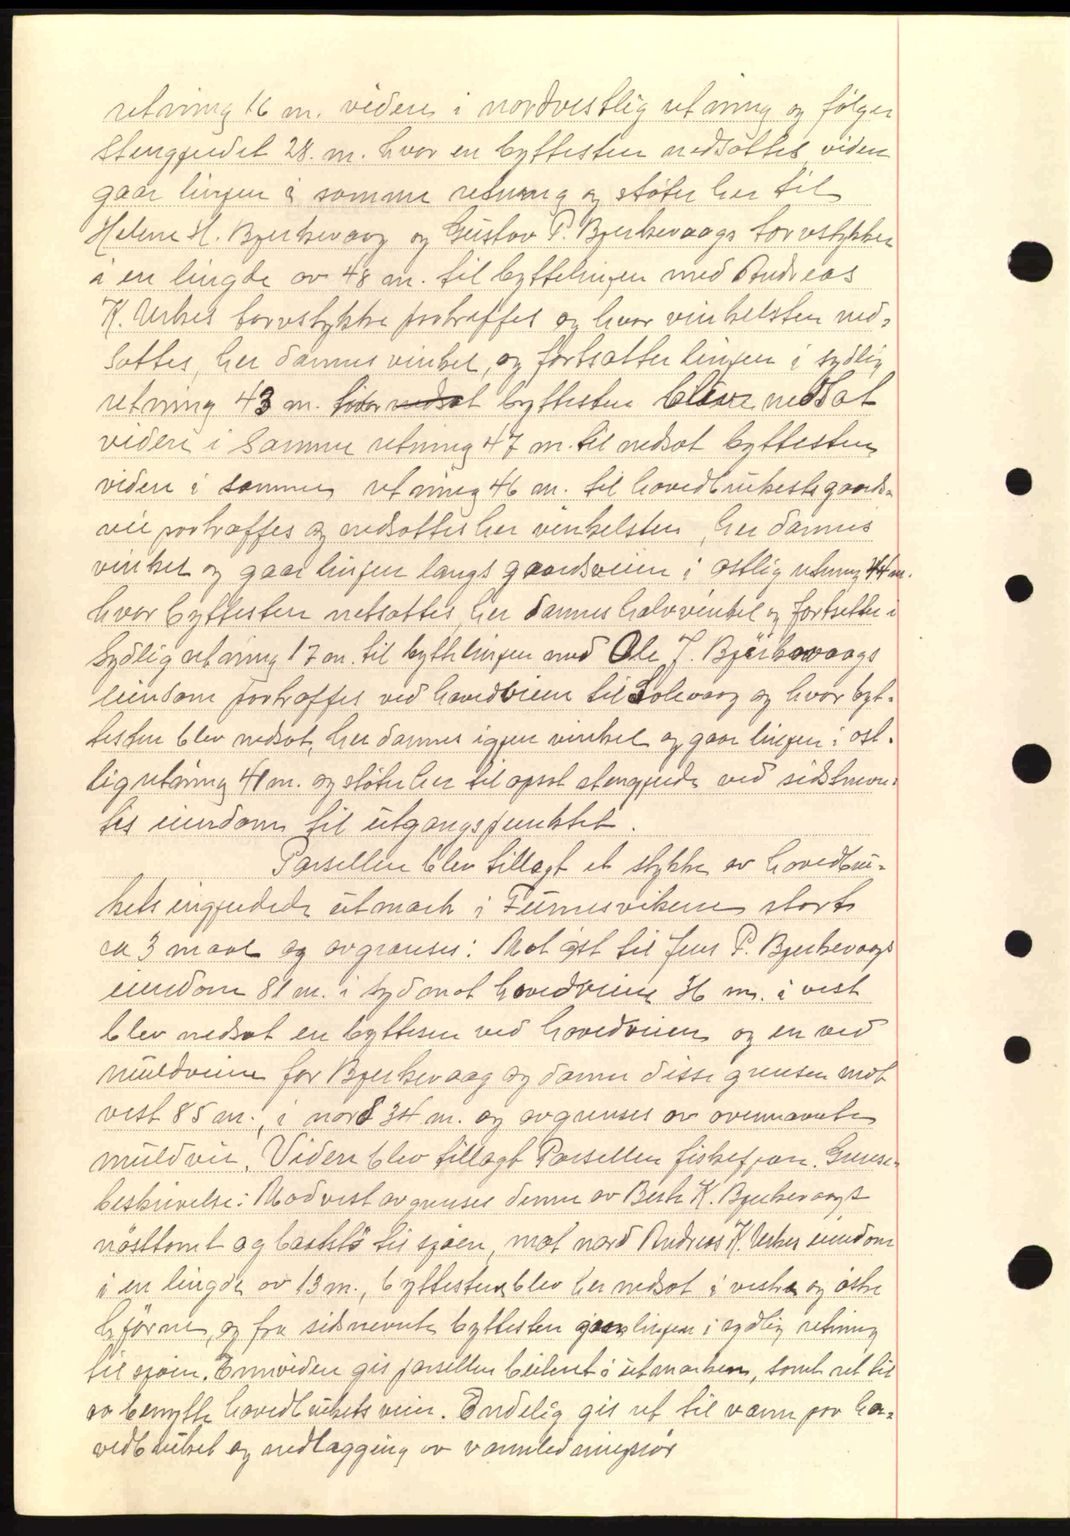 retning 16 m. videre i nordvestlig retning og følger
stengjerdet 28. m. hvor en byttesten nedsattes, videre
gaar linjen i samme retning og støter her til
Helene H. Bjerkevaag og Gustav P. Bjerkevaags torvstykker
i en lengde av 48 m. til byttelinjen med Andreas
K. Urkes torvstykke portreffes og hvor vinkelsten ned-
sattes, her dannes vinkel, og fortsetter linjen i sydlig
retning 43 m. byttesten blev nedsat
videre i samme retning 47 m. til nedsat byttesten
videre i samme retning 46 m. til hovedbrukets gaards-
vei portreffes og nedsattes her vinkelsten, her dannes
vinkel og gaar linjen langs gaardsveien i østlig retning 44 m.
hvor byttesten netsattes, her dannes halvvinkel og fortsetter i
sydlig retning 17 m. til byttelinjen med Ole J. Bjørkevaags
eiendom portreffes ved hovedveien til Solevaag og hvor byt-
testen blev nedsat, her dannes igjen vinkel og gaar linjen i øst-
lig retning 41 m. og støter her til opsat stengjerde ved sidstnevn-
tes eiendom til utgangspunktet.
Parsellen blev tillagt et stykke av hovedbru-
kets ingjerdede utmark i Furnesviken stort
ca 3 maal og avgrenses: Mot øst til Jens P. Bjerkevaags
eiendom 81 m. i syd mot hovedveien 36 m. i vest
blev nedsat en byttesen ved hovedveien og en ved
muldveien for Bjerkevaag og danner disse grensen mot
vest 85 m., i nord 34 m. og avgrenses av ovennævnte
muldvei. Videre blev tillagt Parsellen fiskeplan. Grense-
beskrivelse: Mod vest avgrenses denne av Berte K. Bjerkevaags
nøsttomt og baatstø til sjøen, mot nord Andreas K. Urkes eiendom
i en lengde av 13 m., byttestene blev her nedsat i vestre og østre
hjørne, og fra sidsnevnte byttesten gaar linjen i sydlig retning
til sjøen. Envidere gis parsellen beiteret i utmarken, samt ret til
av benytte hovedbrukets veier. Endelig gis ret til vann paa ho-
vedbruket og nedlægging av vannledningsrør